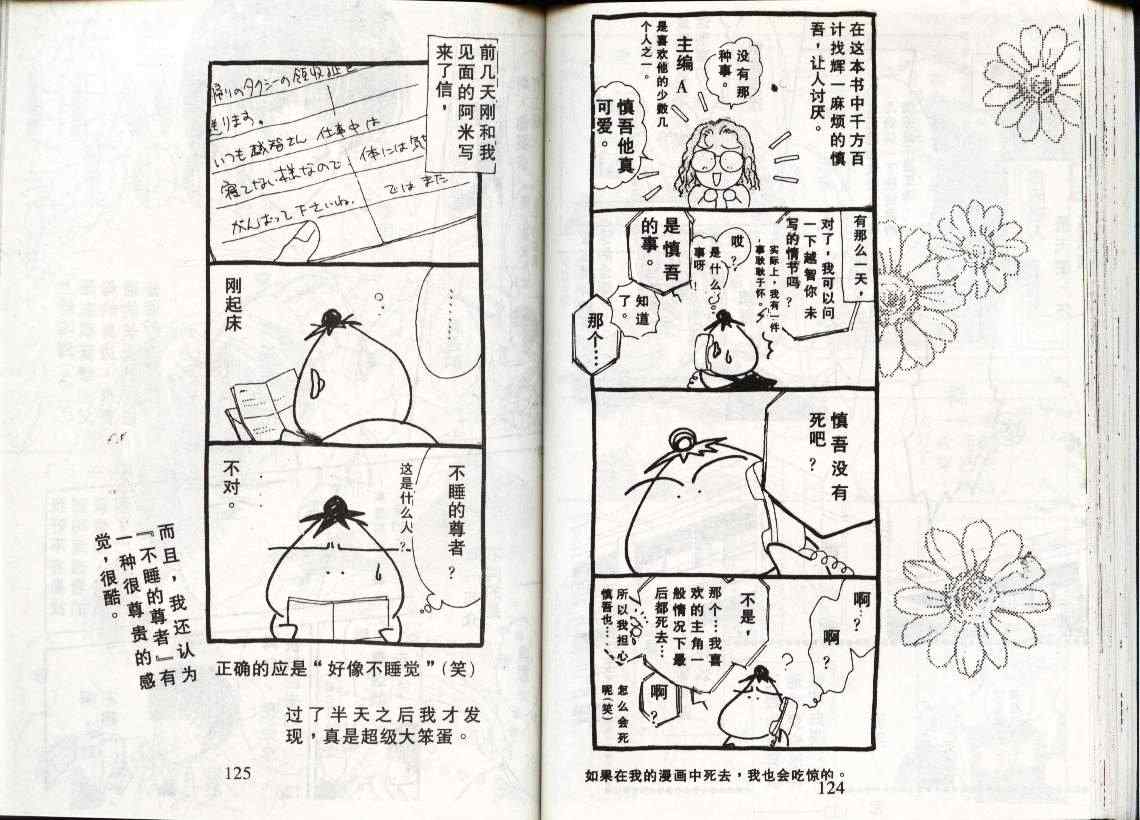 在这本书中千方百
计找辉一麻烦的慎
吾，让人讨厌。
没有那
种事。
主编A
是喜欢他的少数几
个人之一。
慎吾他真
可爱。
有那么一天，
对了，我可以问
一下越智你未
写的情节吗？
实际上，我有一件
事耿耿于怀。
哎？
是什么
事呀！
是慎吾
的事。
知道
了。
那个…
慎吾没有
死吧？
啊…？
啊？
不是，
那个…我喜
欢的主角一
般情况下最
后都死去…
所以我担心
慎吾也…
啊？
怎么会死
呢（笑）
如果在我的漫画中死去，我也会吃惊的。
124
前几天刚和我
见面的阿米写
来了信，
帰りのタクシーの領収証を
送ります。
いつも越智さん 仕事中は
寝てない様なので 体には気
がんばって下さいね。 ではまた
………
刚起床
不睡的尊者？
这是什么人？
…
不对。
正确的应是“好像不睡觉”（笑）
过了半天之后我才发
现，真是超级大笨蛋。
而且，我还认为
『不睡的尊者』有
一种很尊贵的感
觉，很酷。
125